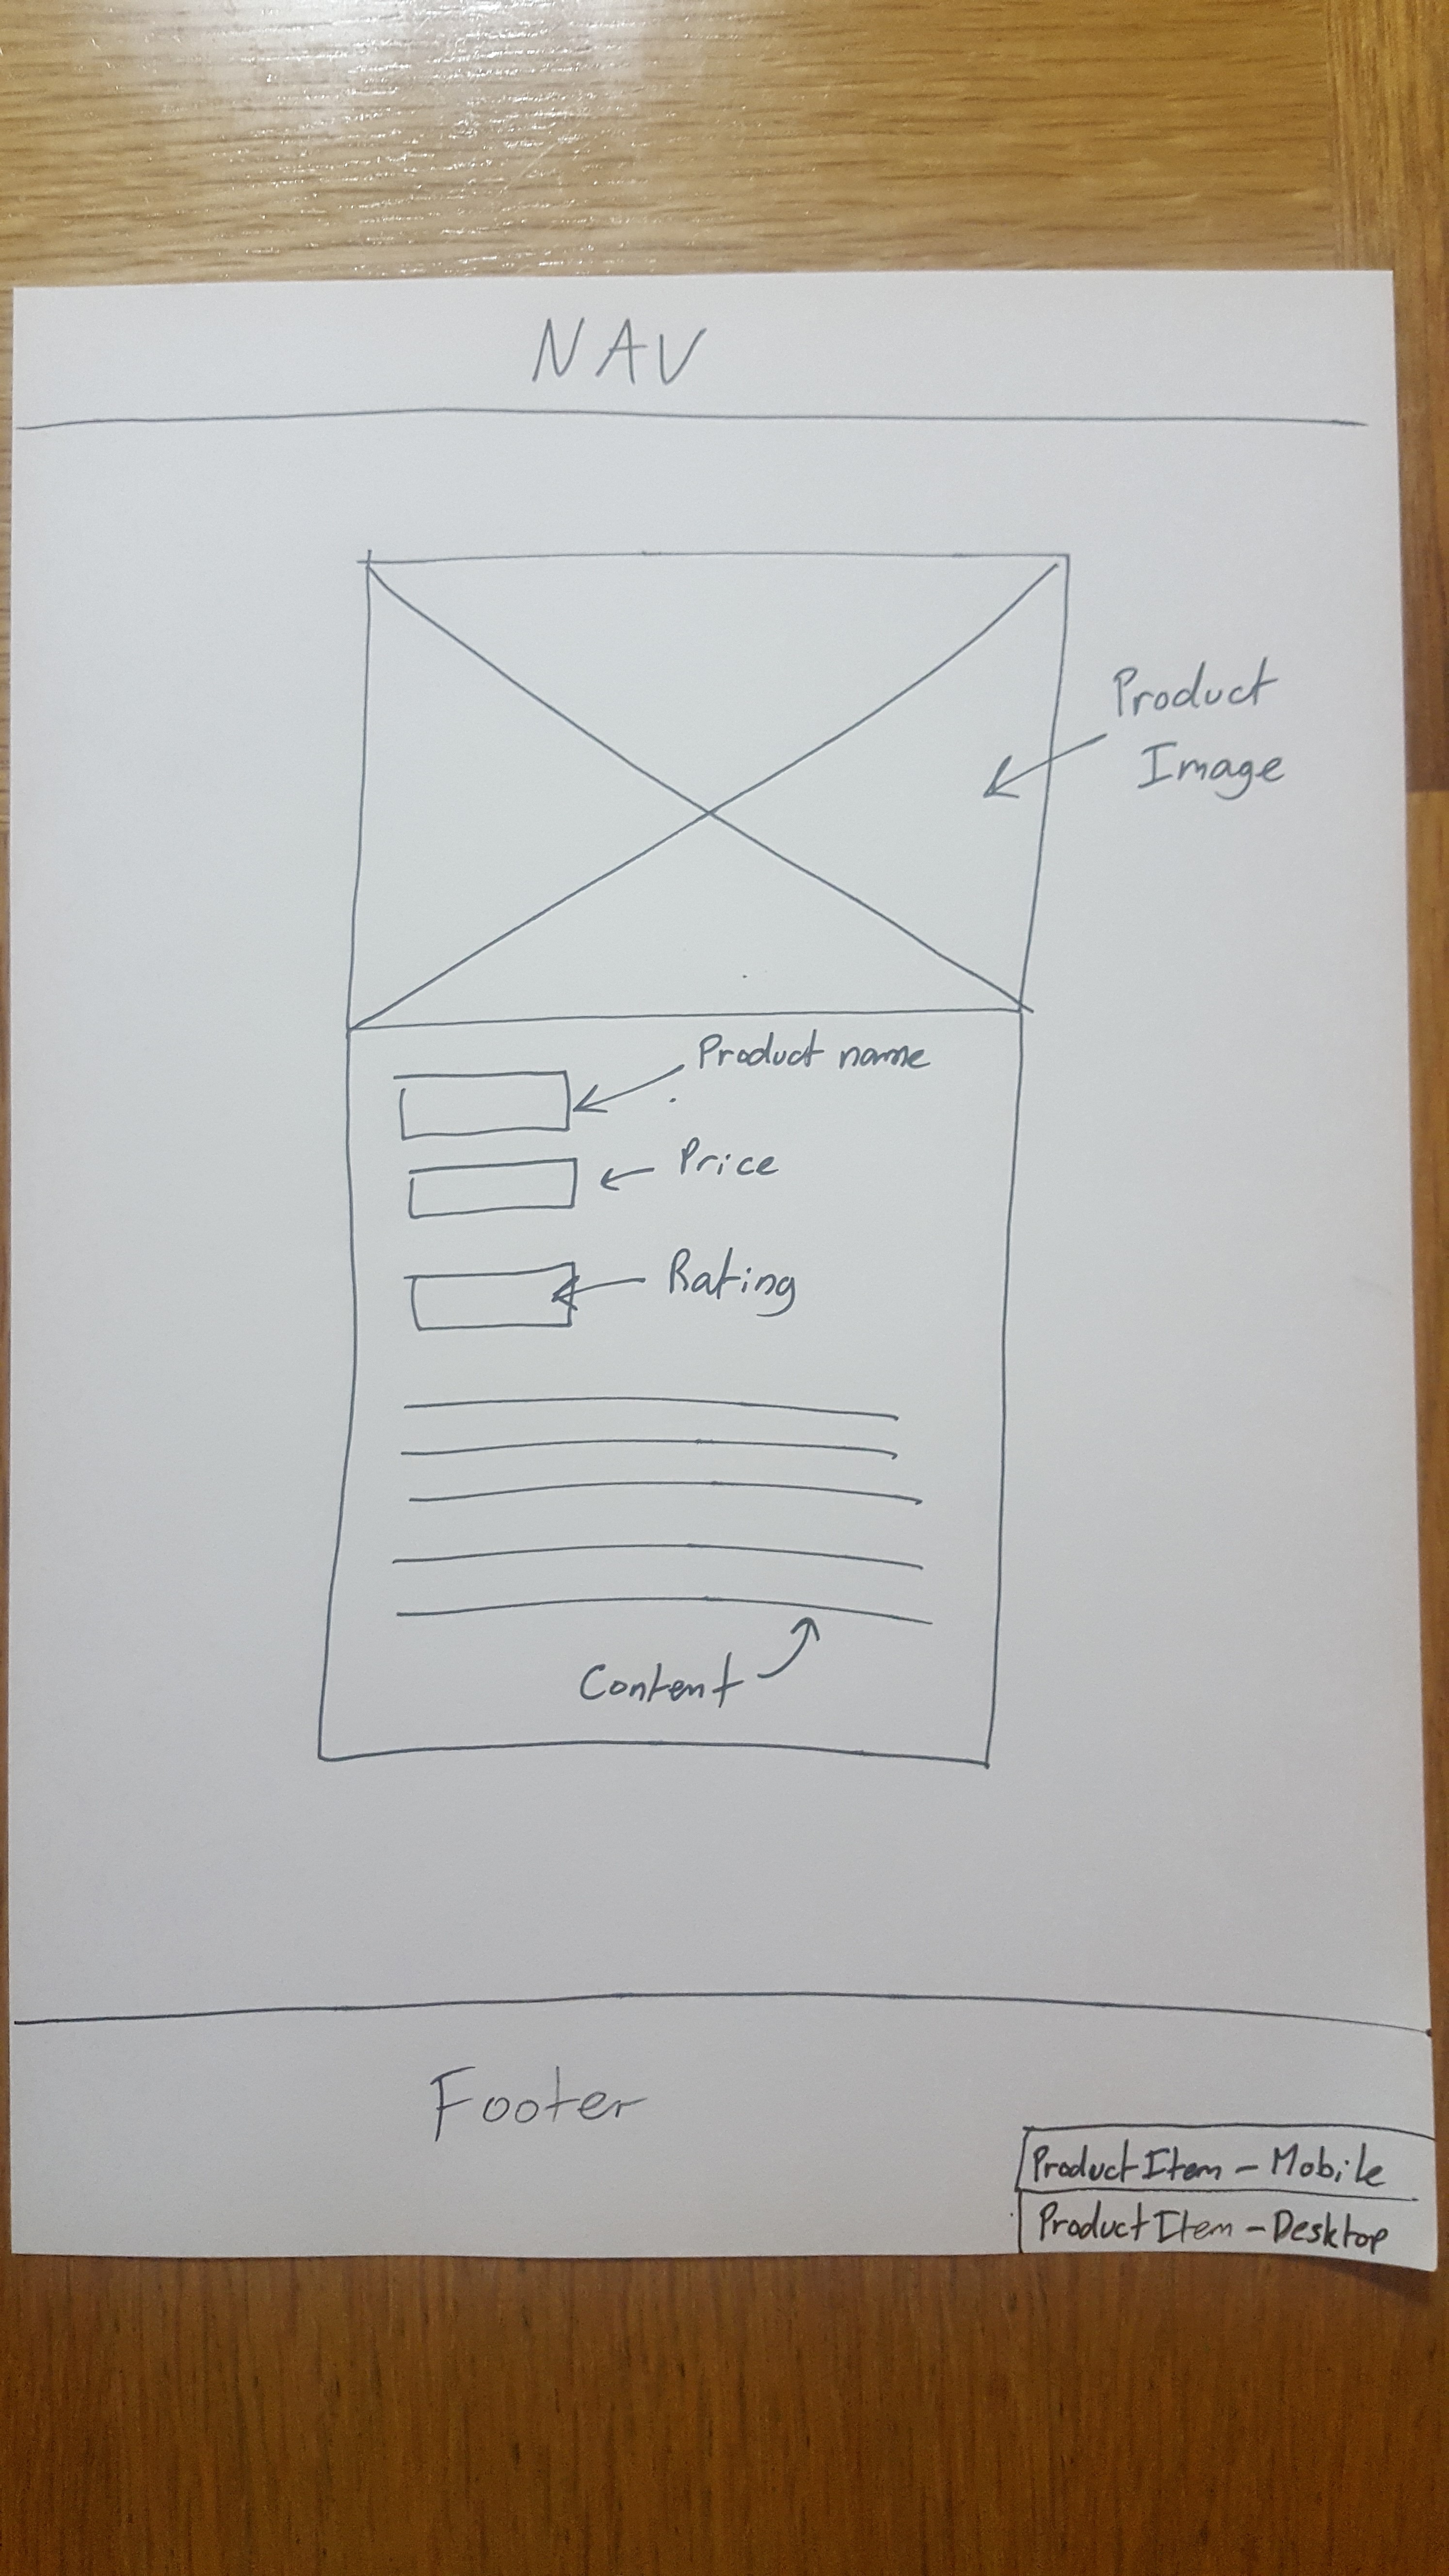 NAV
Product
Image
Product name
Price
Rating
Content
Footer
ProductItem - Mobile
ProductItem - Desktop